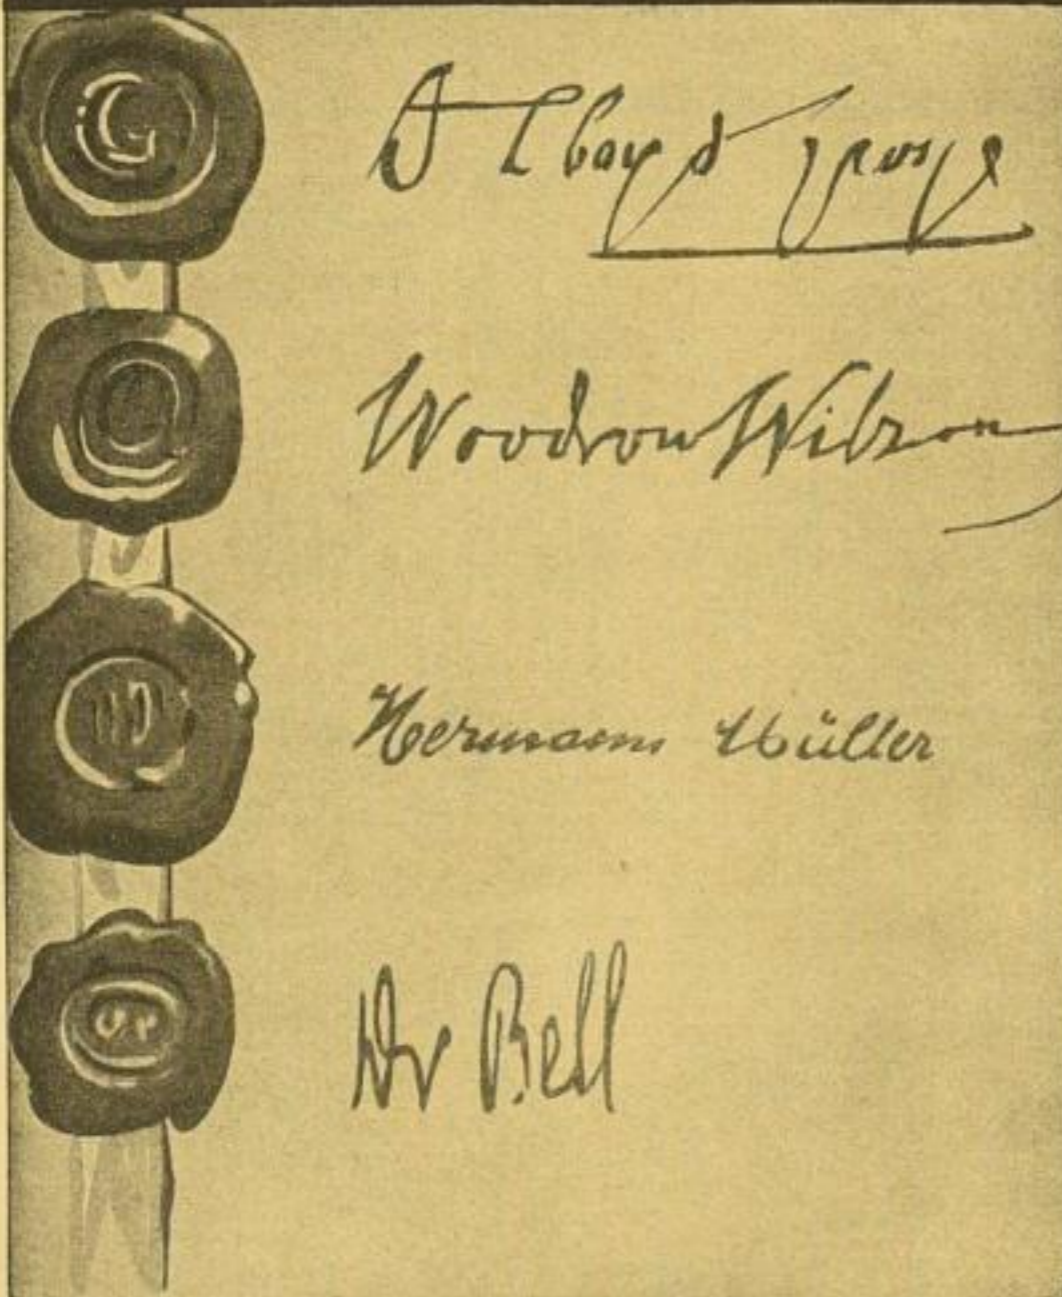 D Lloyd George
Woodrow Wilson
Hermann Müller
Dr Bell